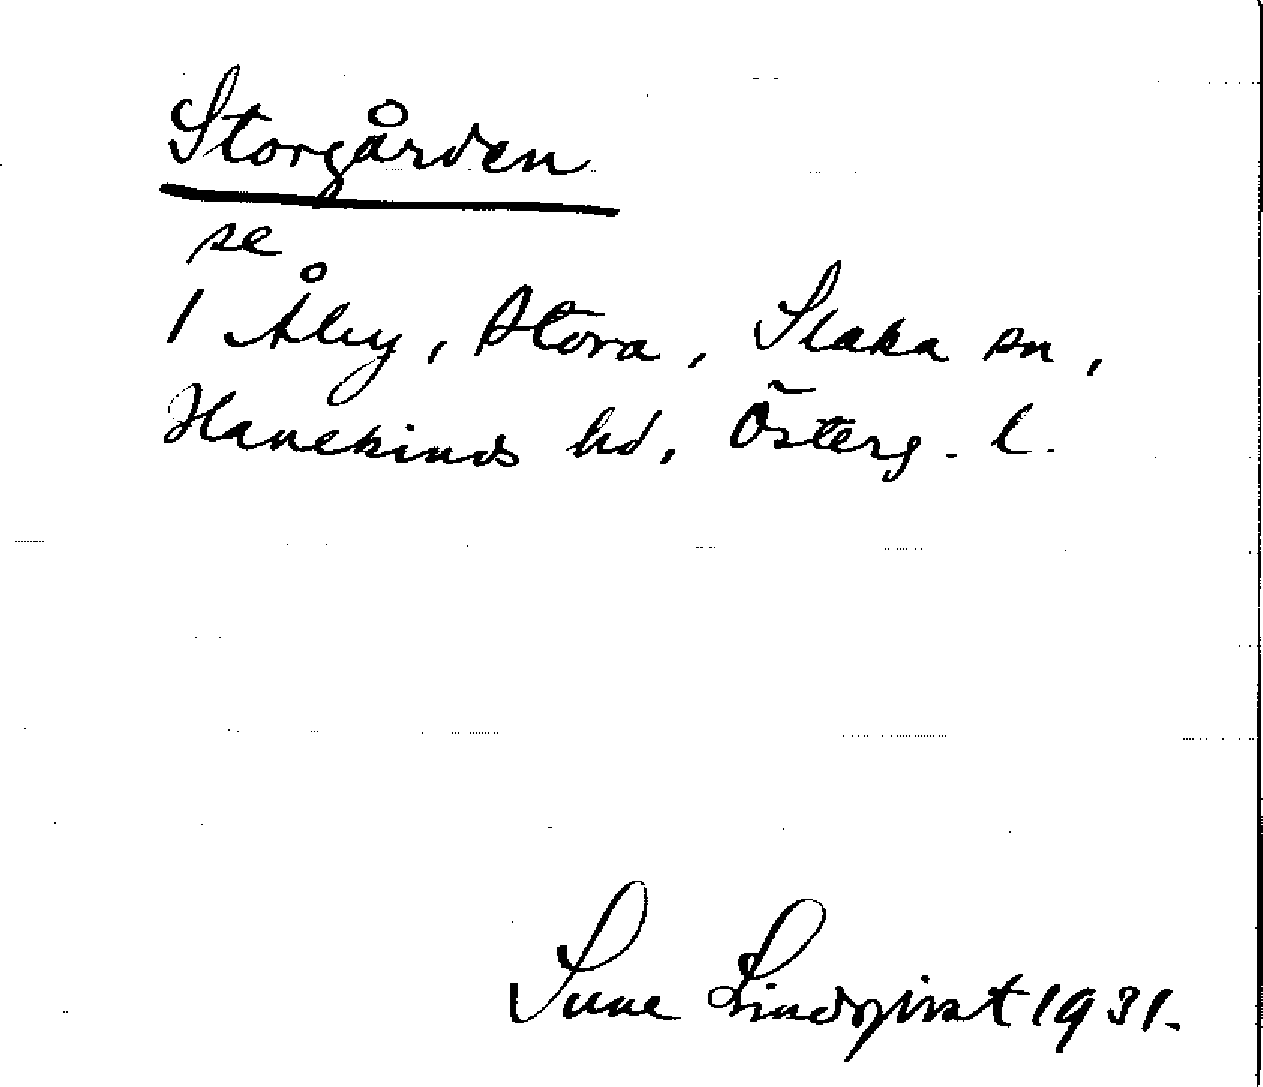 Storgården
se
1 Åby, Stora, Slaka sn,
Hanekinds hd, Österg. l.
Sune Lindqvist 1931.